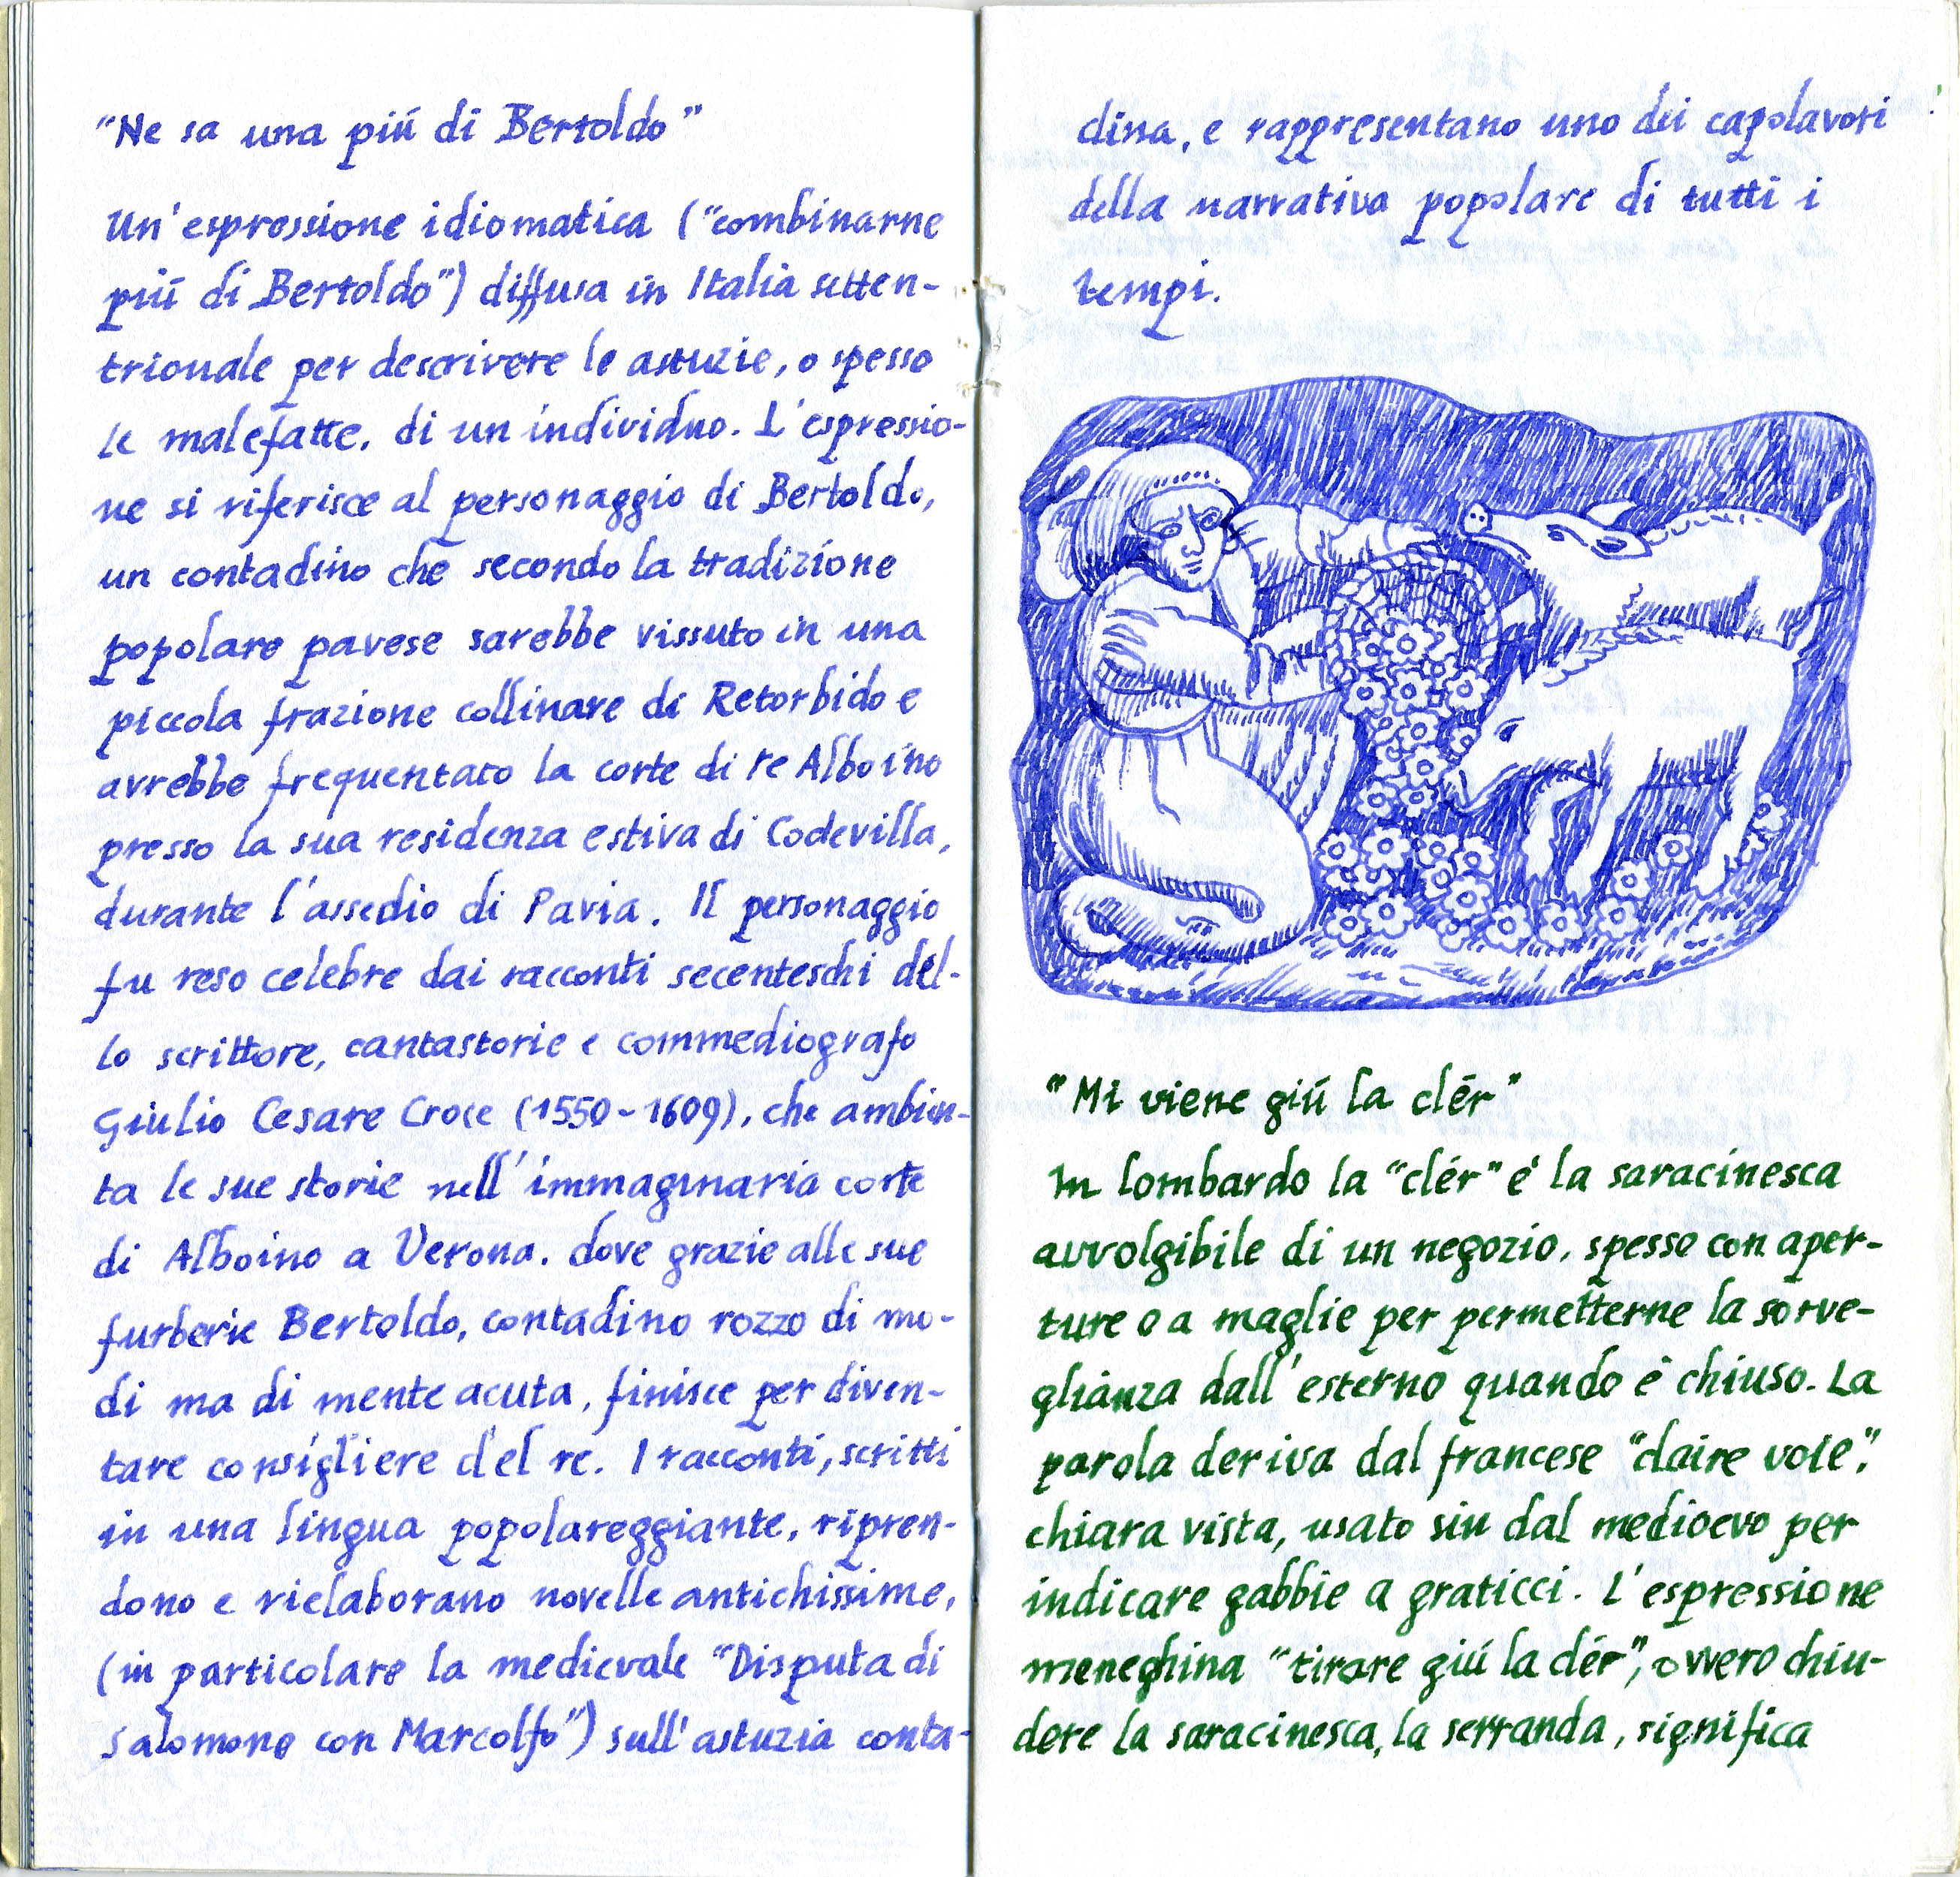 "Ne sa una piú di Bertoldo"
Un'espressione idiomatica ("combinarne
piú di Bertoldo") diffusa in Italia setten-
trionale per descrivere le astuzie, o spesso
le malefatte, di un individuo. L'espressio-
ne si riferisce al personaggio di Bertoldo,
un contadino che secondo la tradizione
popolare pavese sarebbe vissuto in una
piccola frazione collinare di Retorbido e
avrebbe frequentato la corte di re Alboino
presso la sua residenza estiva di Codevilla,
durante l'assedio di Pavia. Il personaggio
fu reso celebre dai racconti secenteschi del-
lo scrittore, cantastorie e commediografo
Giulio Cesare Croce (1550-1609), che ambien-
ta le sue storie nell'immaginaria corte
di Alboino a Verona, dove grazie alle sue
furberie Bertoldo, contadino rozzo di mo-
di ma di mente acuta, finisce per diven-
tare consigliere del re. I racconti, scritti
in una lingua popolareggiante, ripren-
dono e rielaborano novelle antichissime,
(in particolare la medievale "Disputa di
Salomone con Marcolfo") sull'astuzia conta-
dina, e rappresentano uno dei capolavori
della narrativa popolare di tutti i
tempi.
"Mi viene giú la clér"
In lombardo la "clér" é la saracinesca
avvolgibile di un negozio, spesso con aper-
ture o a maglie per permetterne la sorve-
glianza dall'esterno quando é chiuso. La
parola deriva dal francese "claire voie",
chiara vista, usato sin dal medioevo per
indicare gabbie a graticci. L'espressione
meneghina "tirare giú la clér", ovvero chiu-
dere la saracinesca, la serranda, significa